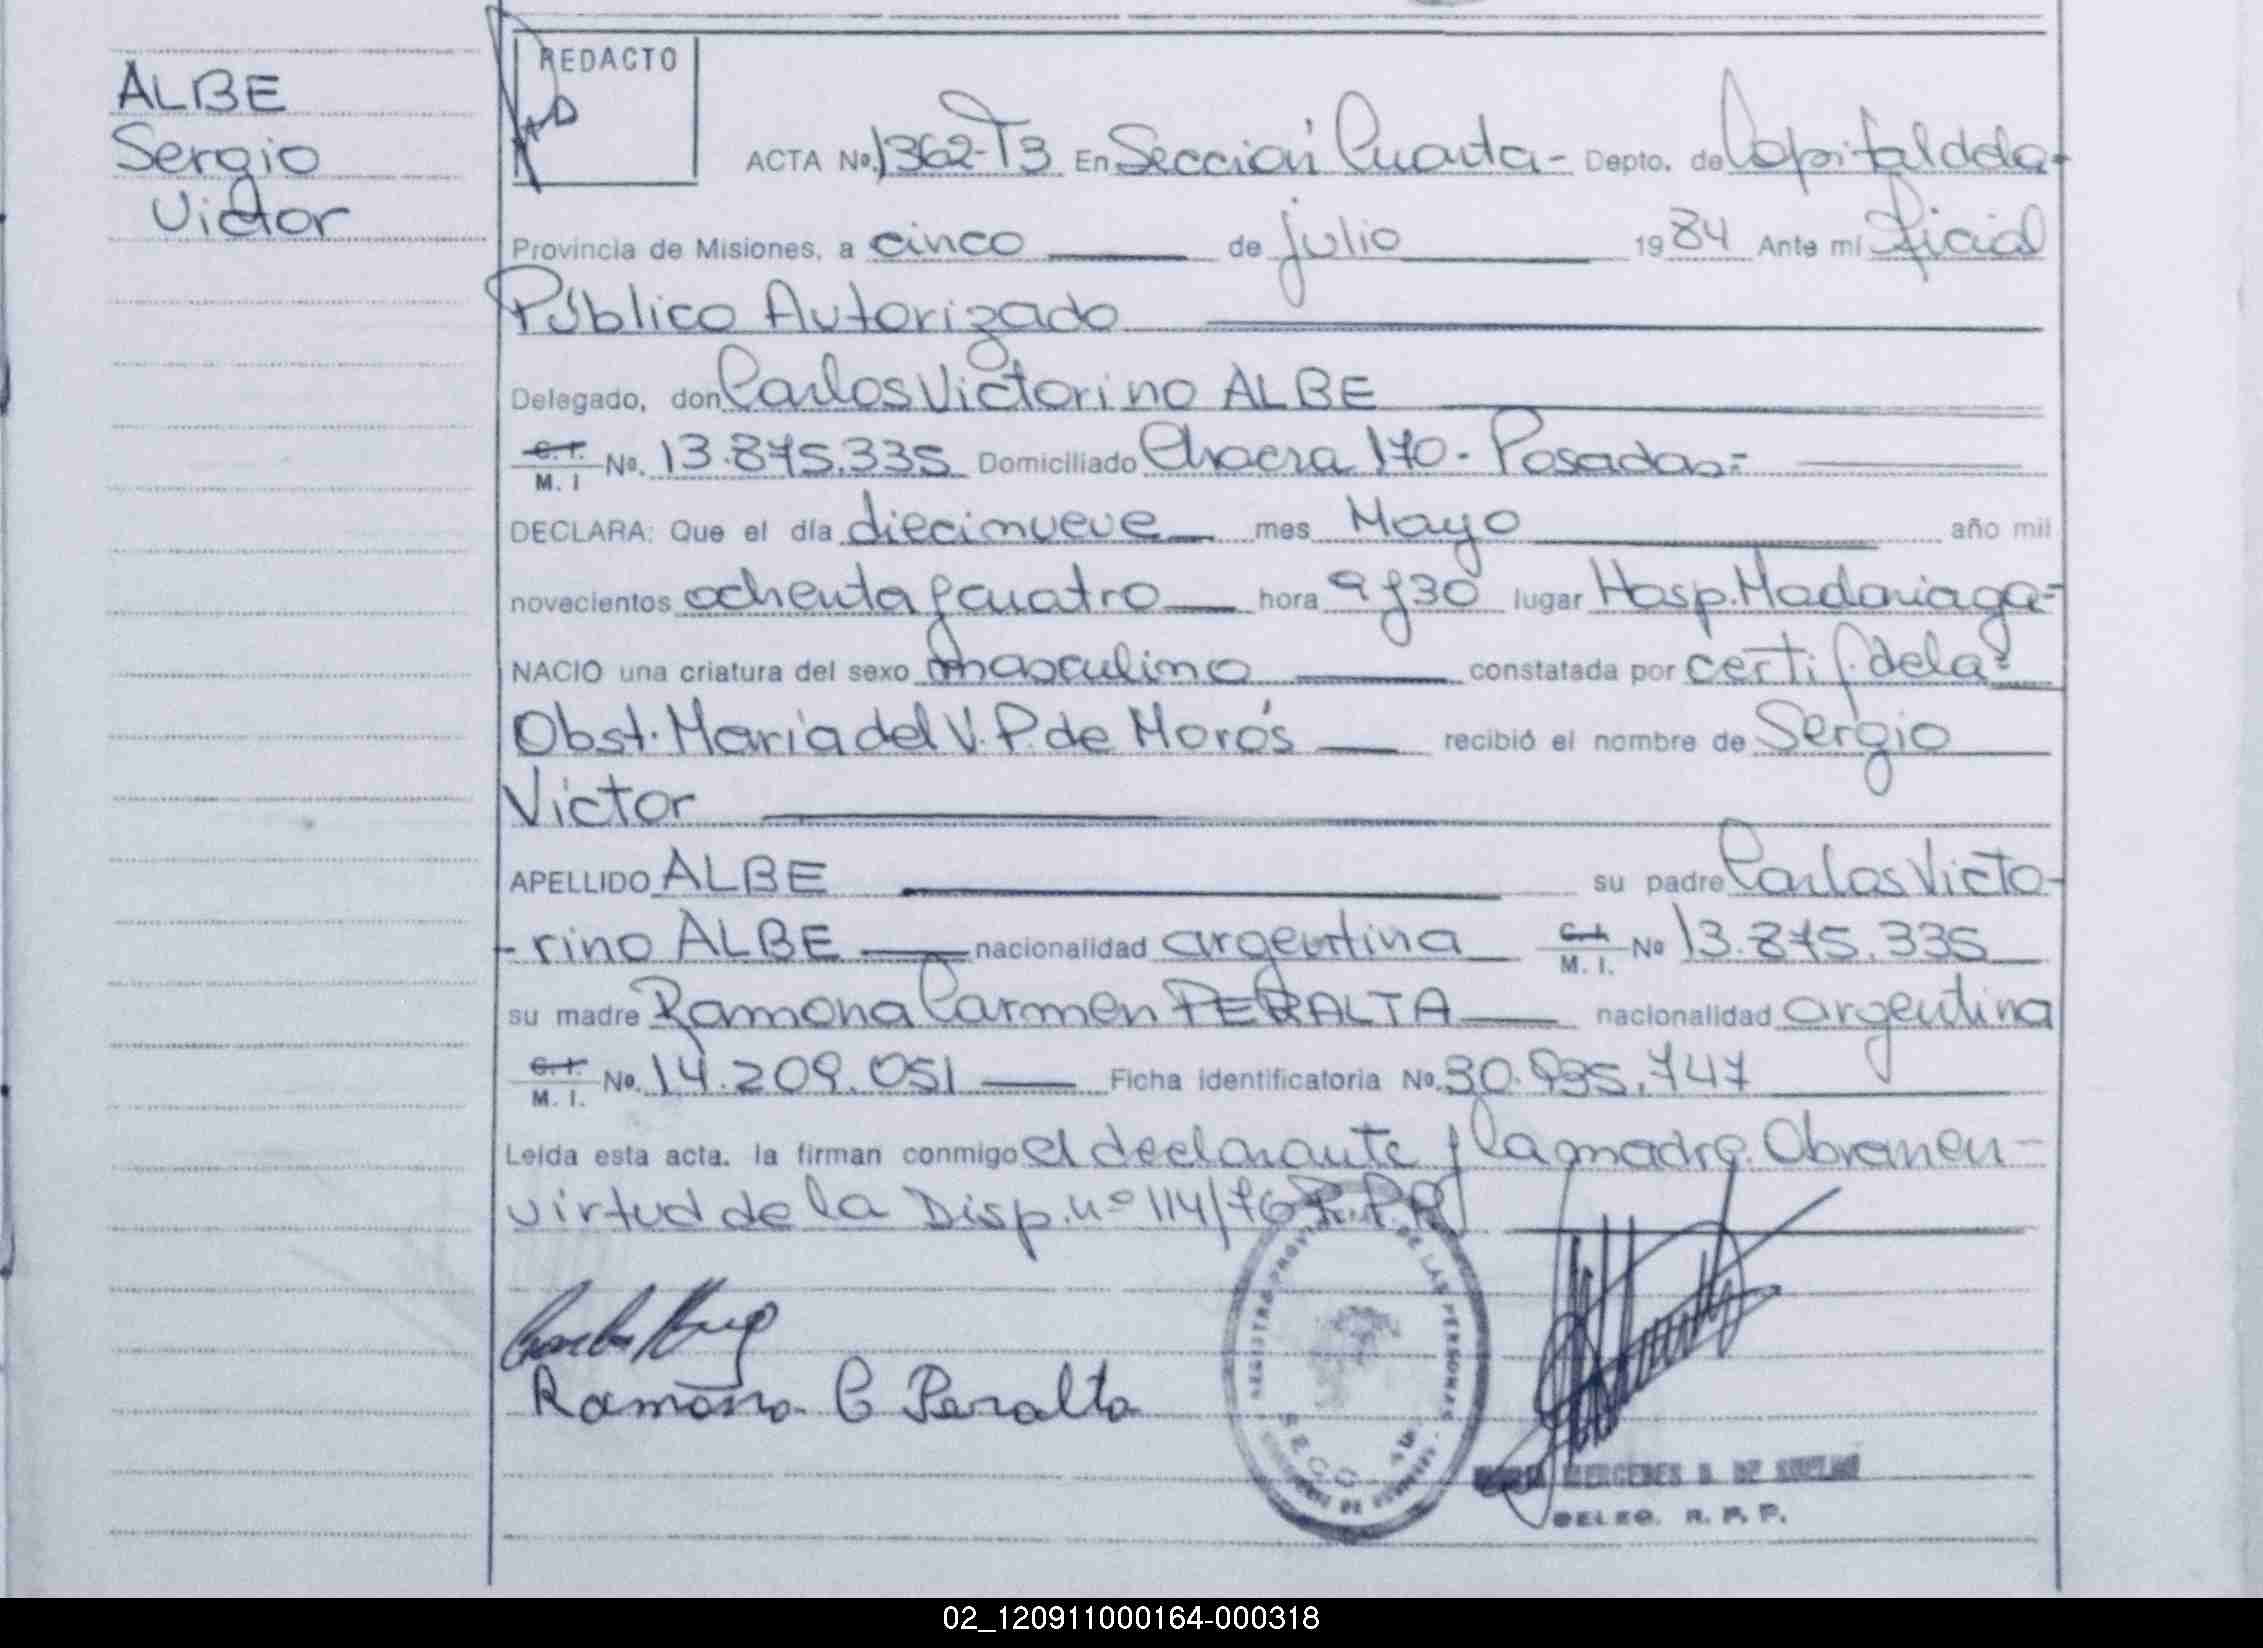 ALBE
Sergio
Victor
REDACTO
ACTA Nº. 1362-T3 En Sección Cuarta- Depto. de Capital de la-
Provincia de Misiones, a cinco de julio 1984 Ante mí Oficial
Público Autorizado
Delegado, don Carlos Victorino ALBE
C.I. M. I Nº. 13.875.335 Domiciliado Chacra 170.- Posadas=
DECLARA: Que el día diecinueve mes Mayo año mil
novecientos ochenta y cuatro hora 9 y 30 lugar Hosp. Madariaga=
NACIO una criatura del sexo masculino constatada por certif. de la=
Obst. María del V. P. de Morós recibió el nombre de Sergio
Victor
APELLIDO ALBE su padre Carlos Victo-
-rino ALBE nacionalidad argentina C.I. M. I. Nº 13.875.335
su madre Ramona Carmen PERALTA nacionalidad argentina
C.I. M. I. Nº. 14.209.051 Ficha identificatoria Nº. 30.935.747
Leída esta acta. la firman conmigo el declarante y la madre. Obran en-
virtud de la Disp. nº 114/76 R.P.P.
Ramona C Peralta
REGISTRO PROVINCIAL DE LAS PERSONAS
SECC. 4a.
MERCEDES
DELEG. R. P. P.
02_120911000164-000318